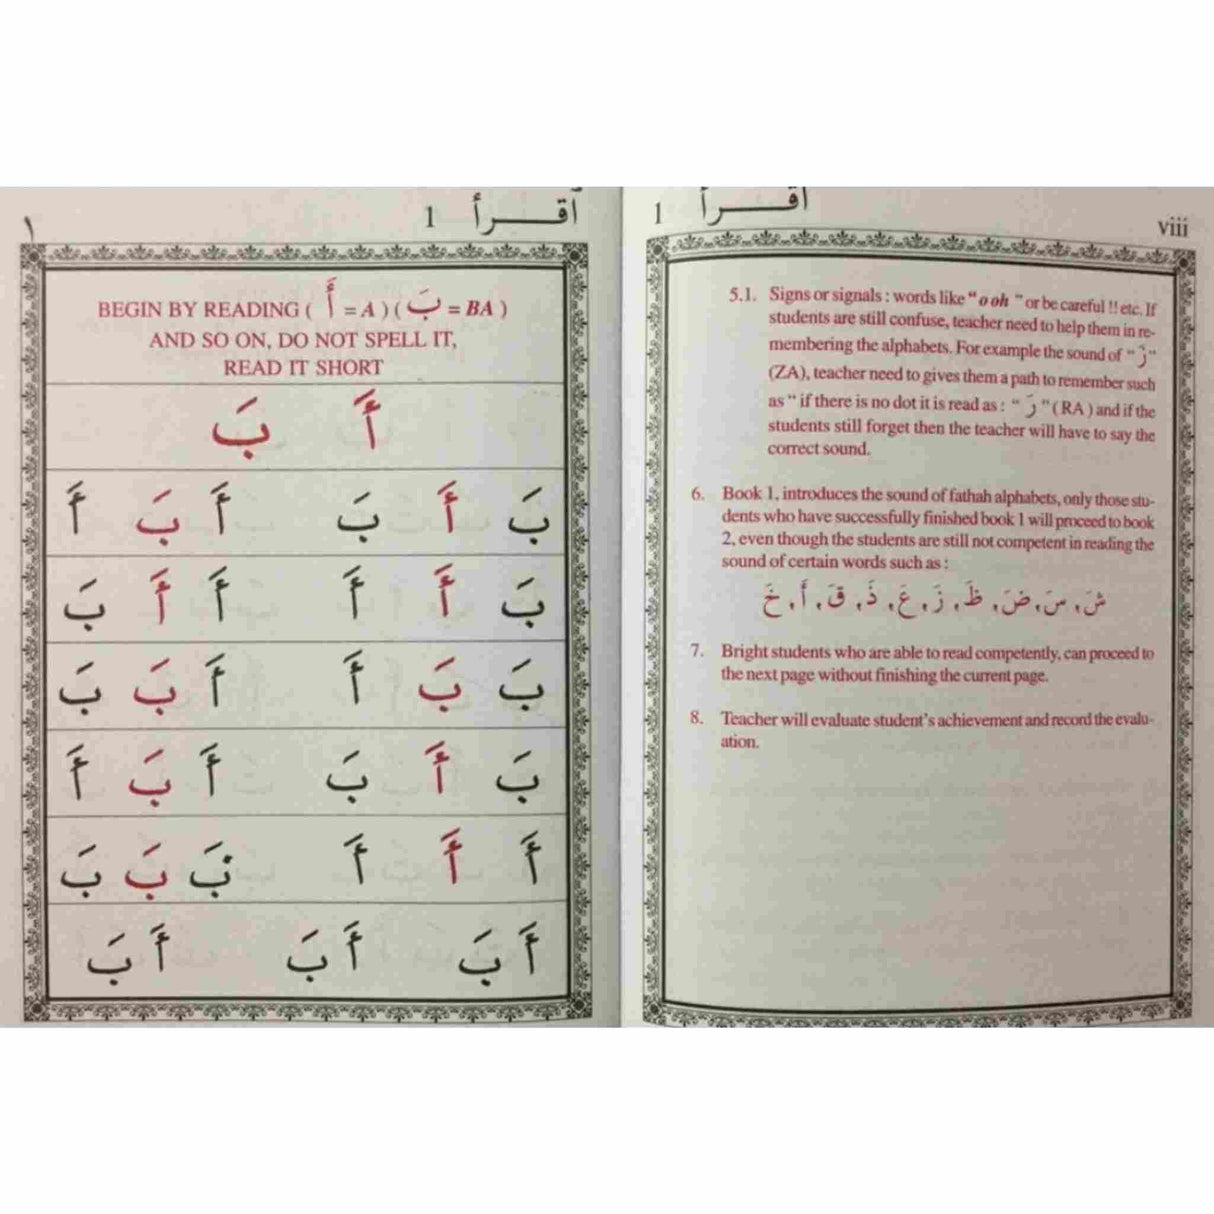 اقرأ 1
viii
5.1. Signs or signals : words like “ o oh ” or be careful !! etc. If
students are still confuse, teacher need to help them in re-
membering the alphabets. For example the sound of “ زَ “
(ZA), teacher need to gives them a path to remember such
as “ if there is no dot it is read as : “ رَ ” (RA ) and if the
students still forget then the teacher will have to say the
correct sound.
6. Book 1, introduces the sound of fathah alphabets, only those stu-
dents who have successfully finished book 1 will proceed to book
2, even though the students are still not competent in reading the
sound of certain words such as :
شَ ، سَ ، ضَ ، ظَ ، زَ ، عَ ، ذَ ، قَ ، أَ ، خَ
7. Bright students who are able to read competently, can proceed to
the next page without finishing the current page.
8. Teacher will evaluate student’s achievement and record the evalu-
ation.
اقرأ 1
١
BEGIN BY READING ( أَ = A ) ( بَ = BA )
AND SO ON, DO NOT SPELL IT,
READ IT SHORT
أَ بَ
بَ أَ بَ أَ بَ أَ
بَ أَ أَ أَ أَ بَ
بَ بَ أَ أَ بَ بَ
بَ أَ بَ أَ بَ أَ
أَ أَ أَ بَ بَ بَ
أَ بَ أَ بَ أَ بَ